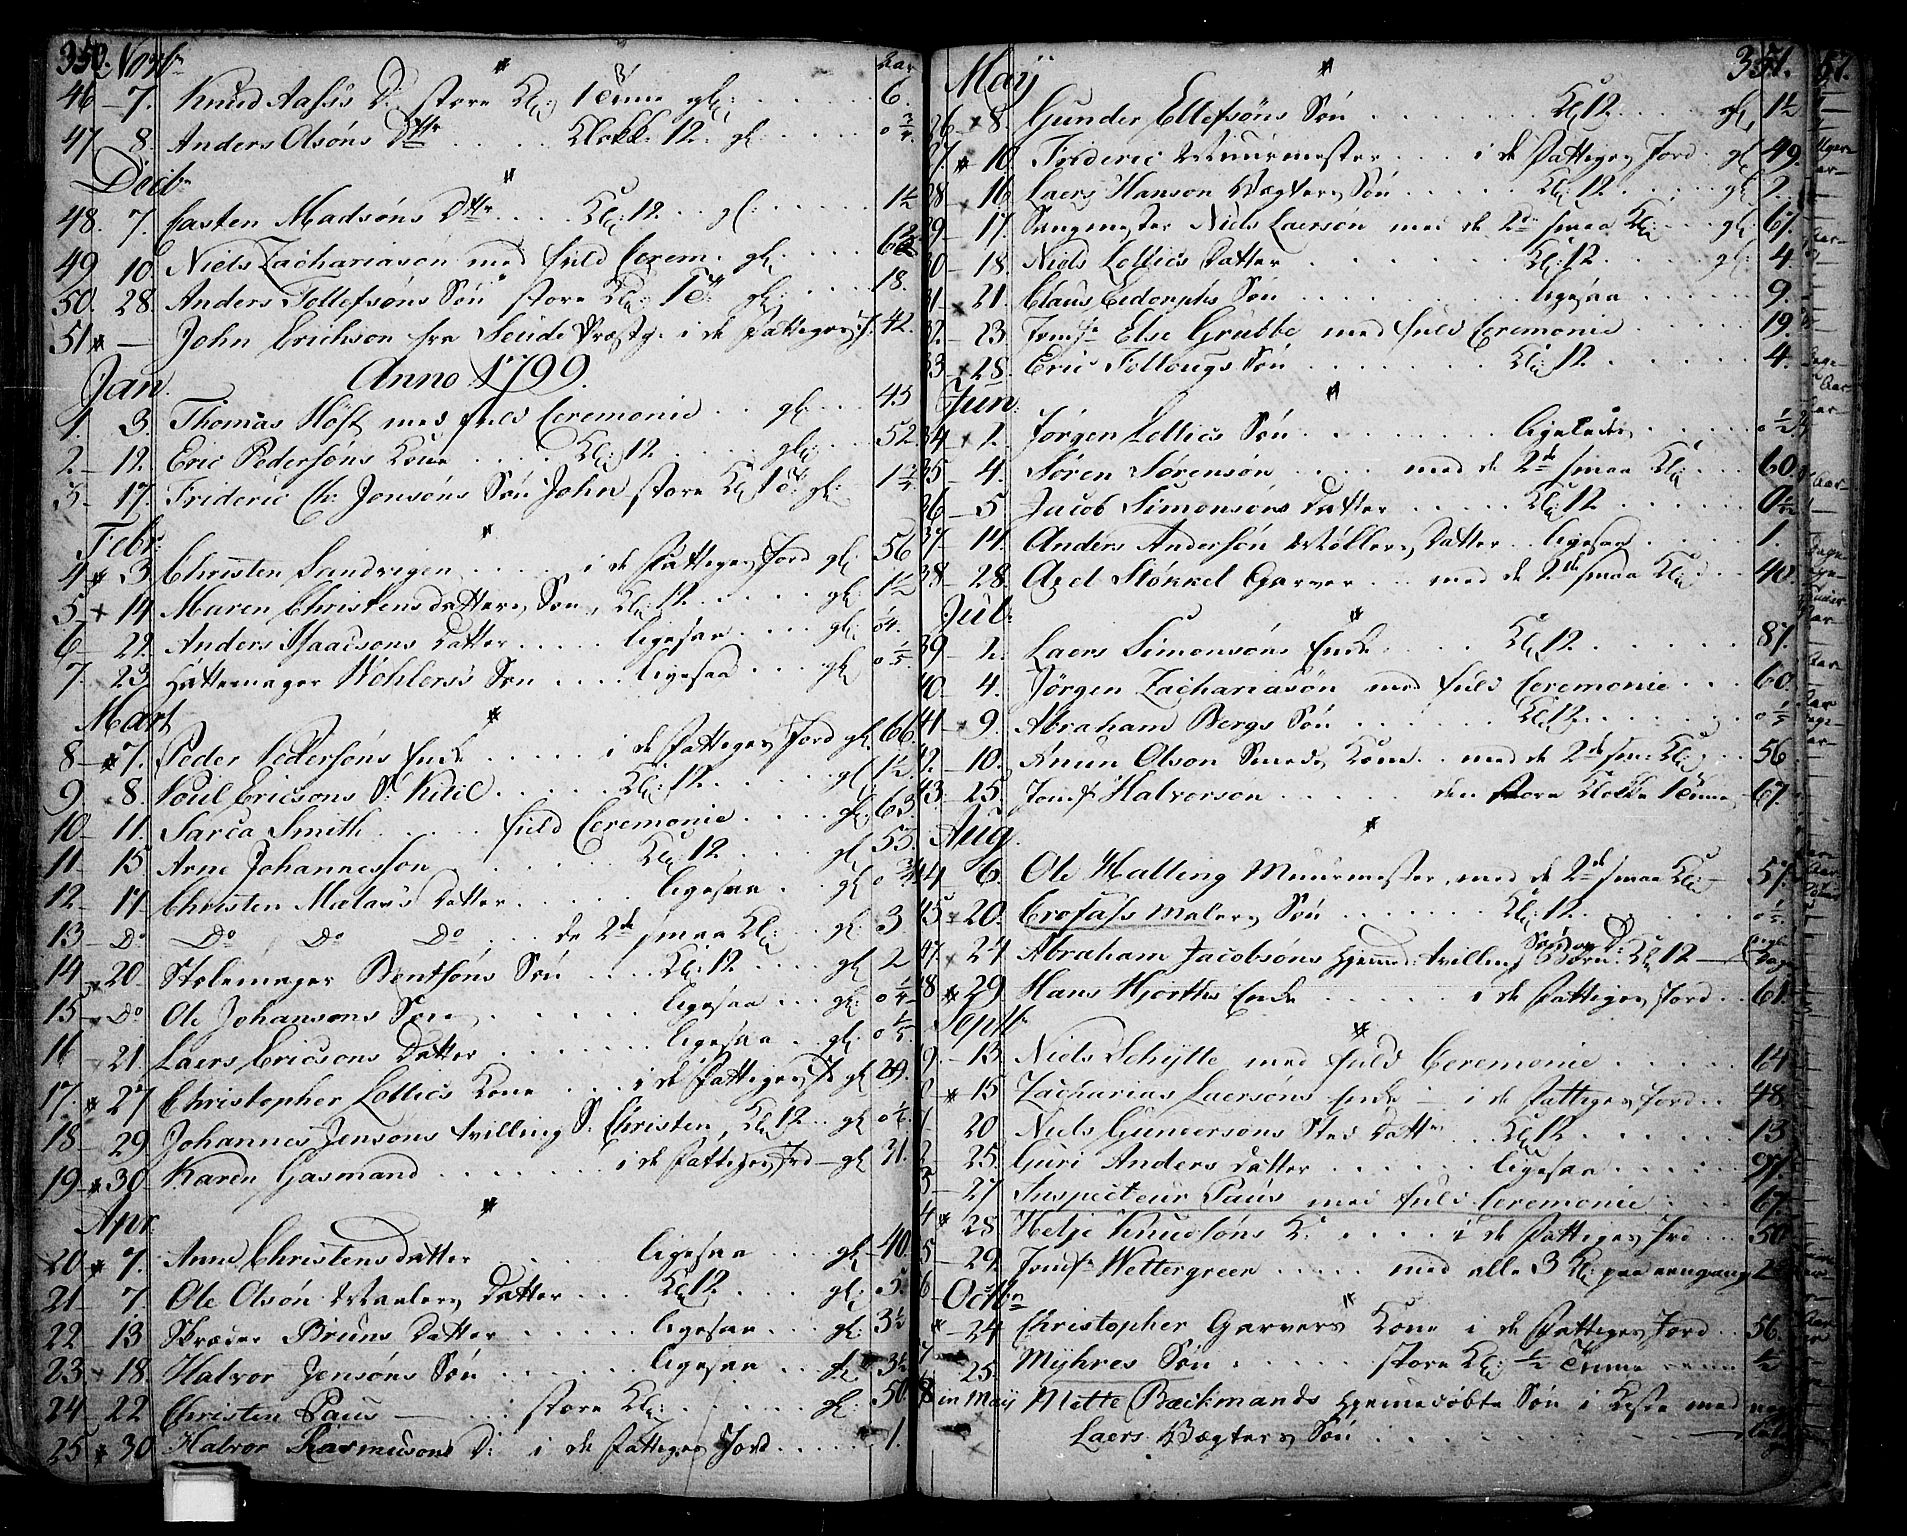 350. Novbr
Aar
46 – 7. Knud Aass's D. store Kl: 1 Time gl: . . . 6.
47 8. Anders Olsøns Dttr . . . Klokk: 12. gl: . . . 0 3/4
Decbr
48. 7. Casten Madsøns Dttr . . . Kl: 12 . . gl: . . . 1 1/2
49 10. Niels Zachariasøn med fuld Cerem. gl: . . .
50. 28. Anders Tollefsøns Søn store Kl: 1 T. gl: . . . 18.
51 * — John Erichsøn fra Seude Præstg: i de Fattiges J. 42.
Jan. Anno 1799.
1. 3. Thomas Høst med fuld Ceremonie . . gl: . . . 43
2. – 12. Eric Pedersøns Kone . . . Kl: 12 . . . gl: 52
3 – 17. Frideric Ch: Jonsøns Søn John store Kl: 1 T. gl: 1 3/4
Febr:
4 * 3 Christen Sandvigen . . . i de Fattiges Jord gl: 56
5 + 14 Maren Christensdatters Søn, Kl: 12 . . . gl: 1 1/2
6 – 22. Anders Isaacsons Datter . . . ligesaa . . . gl:
7. 23. Hattemager Wöhlers's Søn . . . ligesaa . . . gl:
Mart
8 – * 7. Peder Pedersøns Enke . . . i de Fattiges Jord gl: 66
9 . 8. Poul Ericsons S. Kitil . . . Kl: 12 . . . gl: 1 1/2
10 – 11. Sarea Smith . . . fuld Ceremonie . . . gl: 63.
11 – 15 Arne Johannesson . . . Kl: 12 . . . gl: 53.
12 – 17. Christen Mælas's Datter . . . ligesaa . . gl: 0 3/4
13 – Do Do Do Do . . . de 2de smaa Kl: . . . gl: 3
14 * 20 Stolemager Bentsøns Søn . . . Kl: 12 . . . gl: 2
15 – Do Ole Johansons Søn . . . ligesaa . . . gl: 0 1/4
16 21. Laers Ericsons Datter . . . ligesaa . . gl: 0 1/5
17. * 27 Christopher Lollics Kone . . . i de Fattiges J. gl: 29.
18 – 29 Johannes Jensons tvilling S. Christen, Kl: 12 . . gl: 0 1/2
19 – * 30 Karen Gasmand . . . i de Fattiges Jrd – gl: 31.
Apr.
20 * 7. Anne Christensdatter . . . ligesaa . . . gl: 40.
21 – 7. Ole Olsøn Malers Datter . . . Kl: 12 . . . gl: 5.
22 13 Skræder Bruns Datter . . . ligesaa . . . gl: 3 1/2
23 – 18. Halvor Jensøns Søn . . . ligesaa . . . gl: 3 1/2
24 – 22 Christen Paus — . . store Kl: . . . gl: 50.
25 * 30 Halvor Rasmusons D: i de Fattiges Jord . . . 1.
May 351.
26 × 8. Gunder Ellefsøns Søn . . . Kl: 12 . . . gl: 1 1/2
27. * 10. Frideric Muurmester . . . i de Fattiges Jord . gl: 49.
28 – 16. Laers Hanson Vægters Søn . . . Kl: 12 . . . gl: 2.
29 – 17. Niels Laerson med de 2de smaa Kl: . . gl: 67.
30 – 18. Niels Lollics Datter . . . Kl: 12 . . . gl: 4.
31 × 21. Claus Eidorphs Søn . . . ligesaa . . . 9.
32. – 23. Jomfr Else Grubbe med fuld Ceremonie . . . 19.
33 × 28. Eric Tollougs Søn . . . Kl: 12 . . . 4.
Jun:
34 × 1. Jørgen Lollics Søn . . . ligeledes . . . 0 1/2
35 4. Søren Sørensøn . . . med de 2de smaa Kl: . 60.
36 – 5 Jacob Simonsøns Datter . . . Kl: 12 . . .
37 – 14. Anders Andersøn Møllers Datter . ligesaa . . . 1.
38 – 28. Axel Støkkel Garver . . . med de 2de smaa Kl: . 40.
Jul:
39 – 2. Laers Simonsøns Enke . . . Kl: 12 . . . 87.
40. 4. Jørgen Zachariasøn med fuld Ceremonie . . . 60.
41 × 9. Abraham Bergs Søn . . . Kl: 12 . . .
42. – 10. Anun Olson Smeds Kone . . med de 2de sm: Kl: 56
43 – 25. Jomfr Halvorsen . . . den store Klokke 1 Time 67.
Aug.
44 6. Ole Halling Muurmester, med de 2de smaa Kl: – 57.
45 × 20. Crofass Malers Søn . . . Kl: 12 . . .
47. × 24 Abraham Jacobsøns hjemmed: tvilling Børn: Kl: 12 —
Søn og D:
48 * 29. Hans Hjorths Enke . . . i de Fattiges Jord . . 61.
Septbr
– 13 Niels Schytte med fuld Ceremonie . . . 64
* 15 Zacharias Laersøns Enke – i de Fattiges Jord . . 48.
20 Niels Gundersøns Sted Datter . Kl: 12 . . . 13
– 25. Guri Anders Datter . . . ligesaa . . .
– 27 Inspecteur Paus med fuld Ceremonie . . . 67.
* 28. Helje Knudsøns K: . . . i de Fattiges Jrd . . . 50.
– 29 Jomfr Wettergreen . . . med alle 3 Kl: paa eengang
Octbr
* – 24 Christopher Garvers Kone i de Fattiges Jord . . 56.
25. Myhres Søn . . . store Kl: 1/2 Time 1/2
in May Mette Bæckmands hjemmedøbte Søn i Kiste med
Laers Vægters Søn . . .